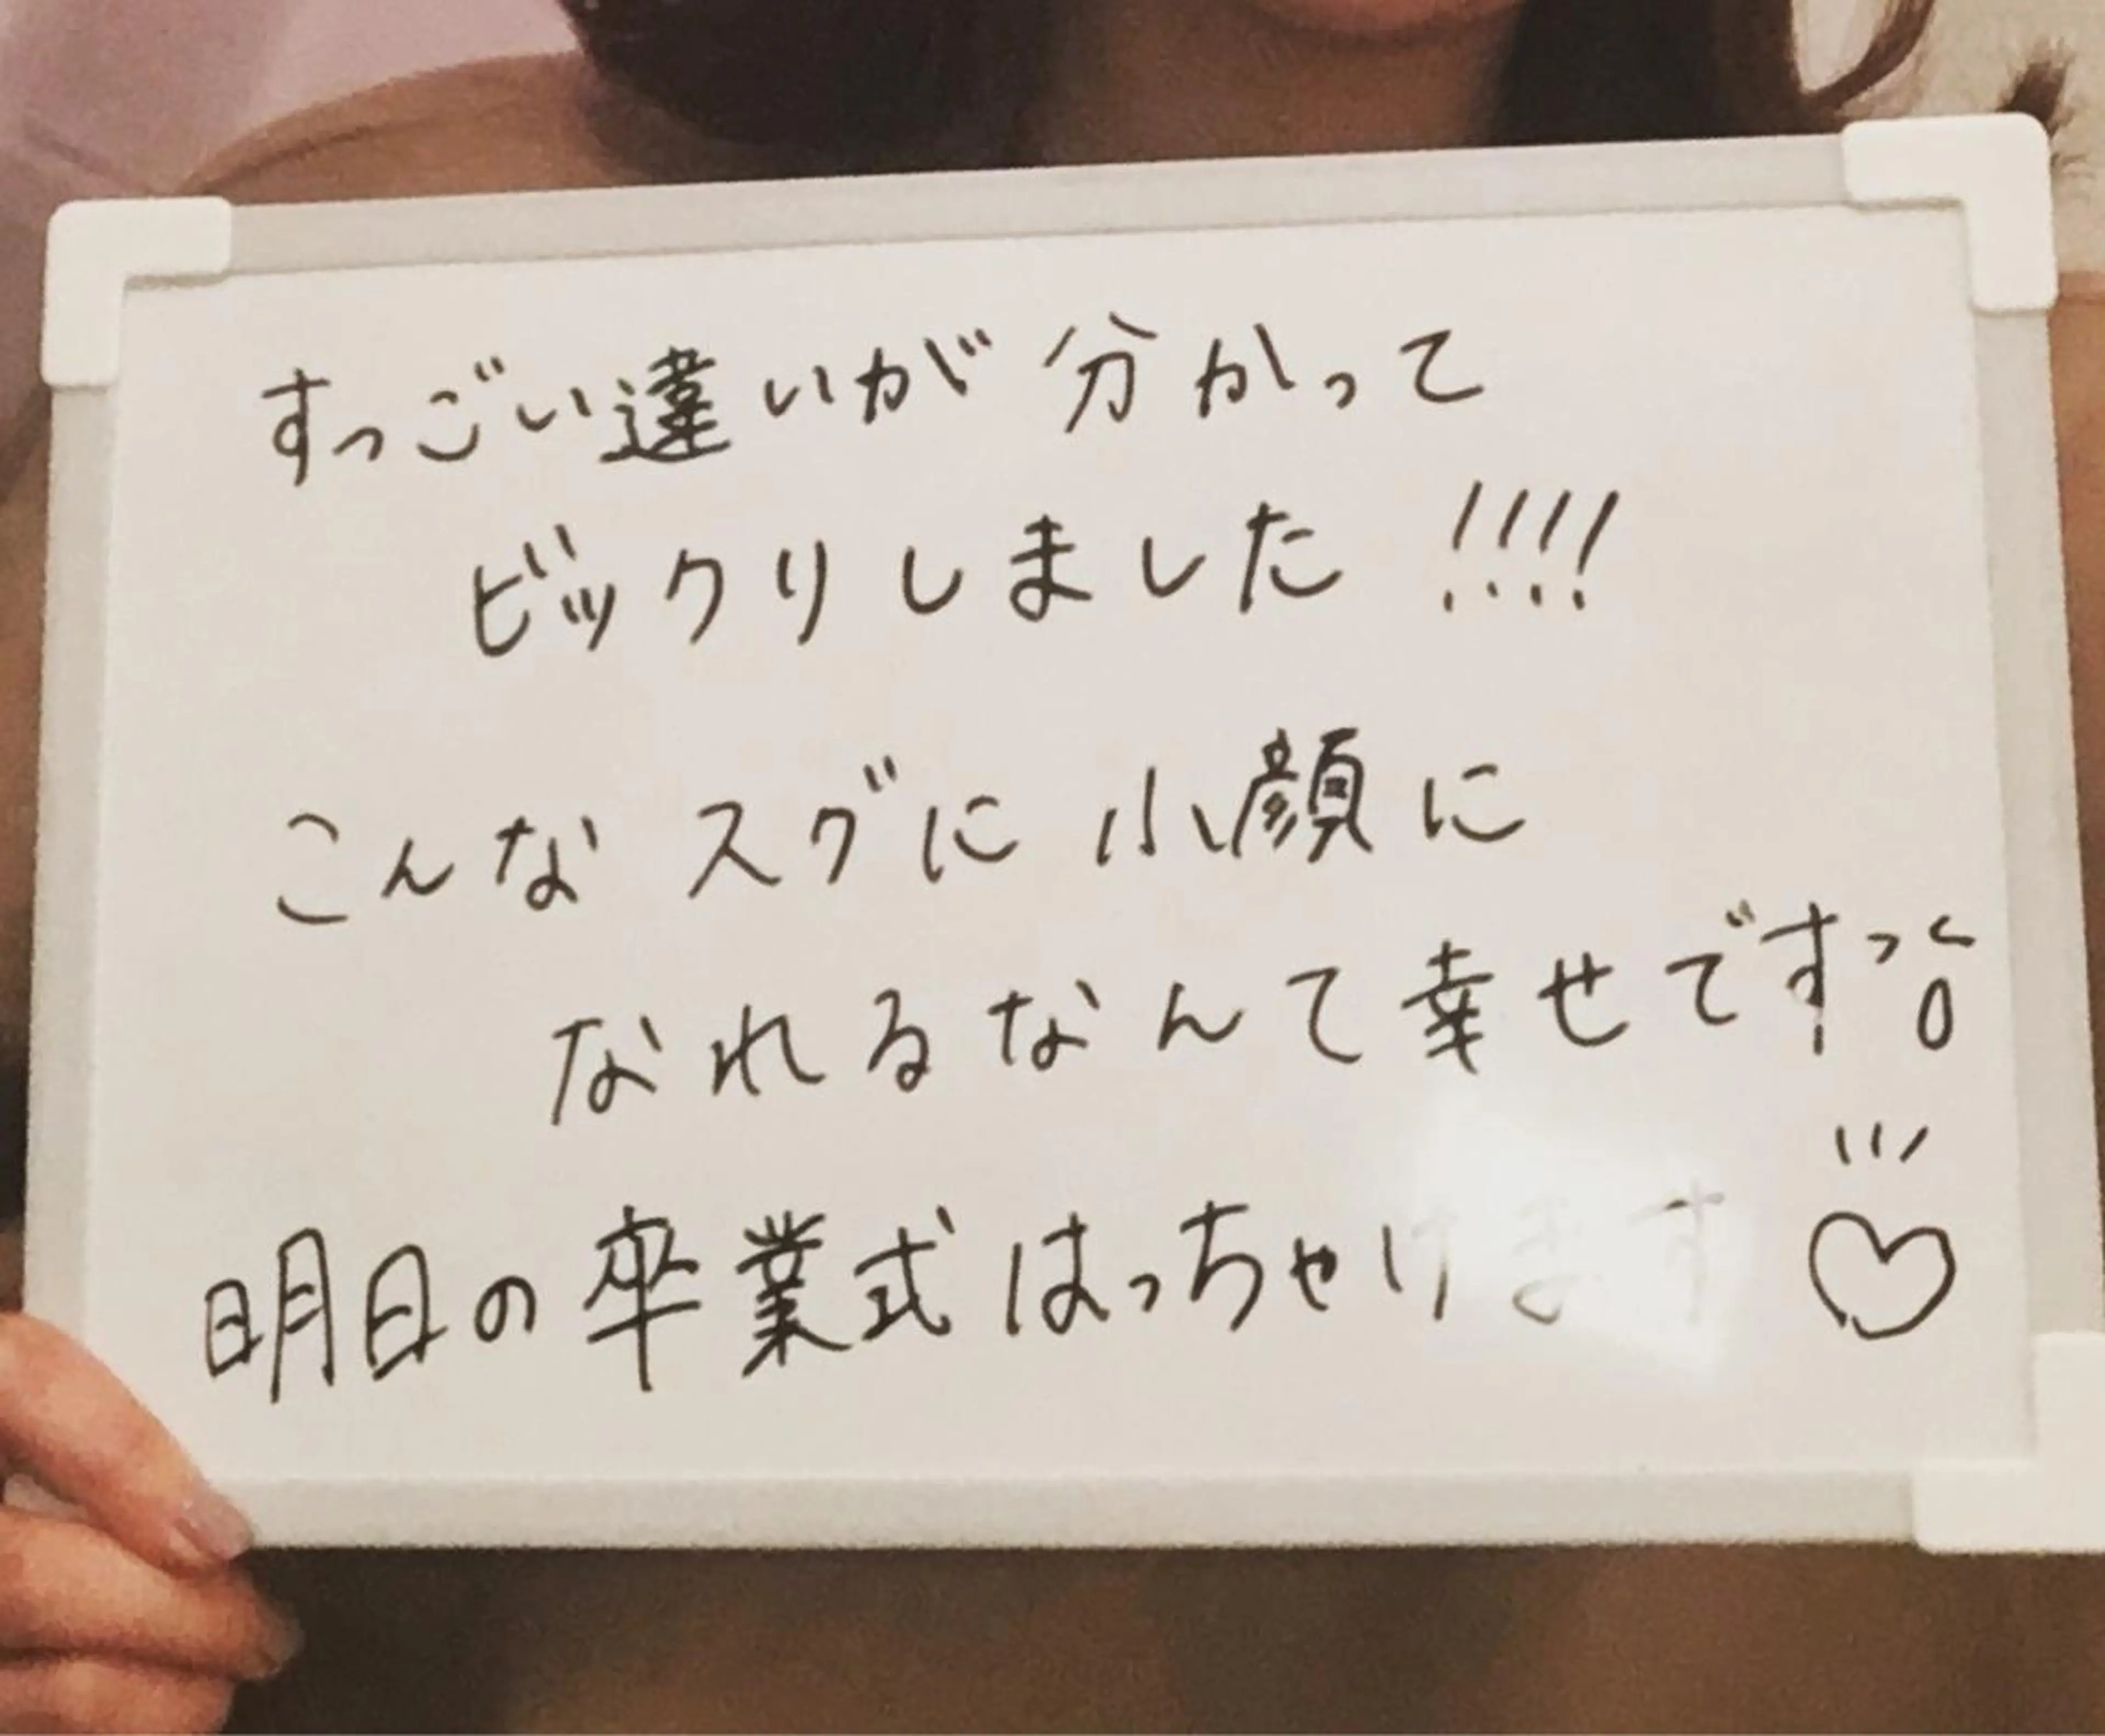 すっごい違いが分かって
ビックリしました!!!!
こんなスグに小顔に
なれるなんて幸せですっ
明日の卒業式はっちゃけます♡